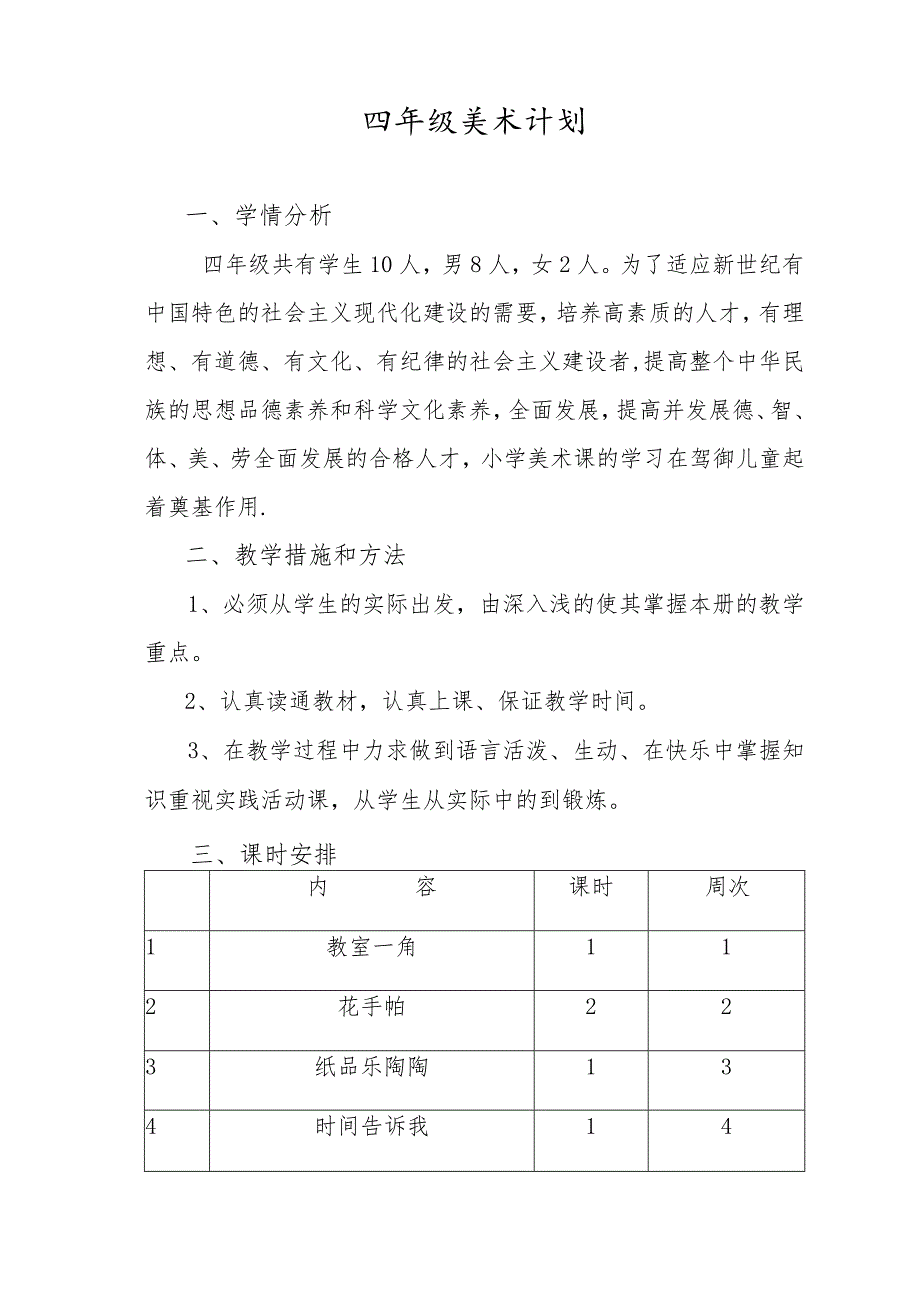 四年级美术计划
一、学情分析
四年级共有学生10人，男8人，女2人。为了适应新世纪有
中国特色的社会主义现代化建设的需要，培养高素质的人才，有理
想、有道德、有文化、有纪律的社会主义建设者,提高整个中华民
族的思想品德素养和科学文化素养，全面发展，提高并发展德、智、
体、美、劳全面发展的合格人才，小学美术课的学习在驾御儿童起
着奠基作用.
二、教学措施和方法
1、必须从学生的实际出发，由深入浅的使其掌握本册的教学
重点。
2、认真读通教材，认真上课、保证教学时间。
3、在教学过程中力求做到语言活泼、生动、在快乐中掌握知
识重视实践活动课，从学生从实际中的到锻炼。
三、课时安排
内 容 课时 周次
1 教室一角 1 1
2 花手帕 2 2
3 纸品乐陶陶 1 3
4 时间告诉我 1 4